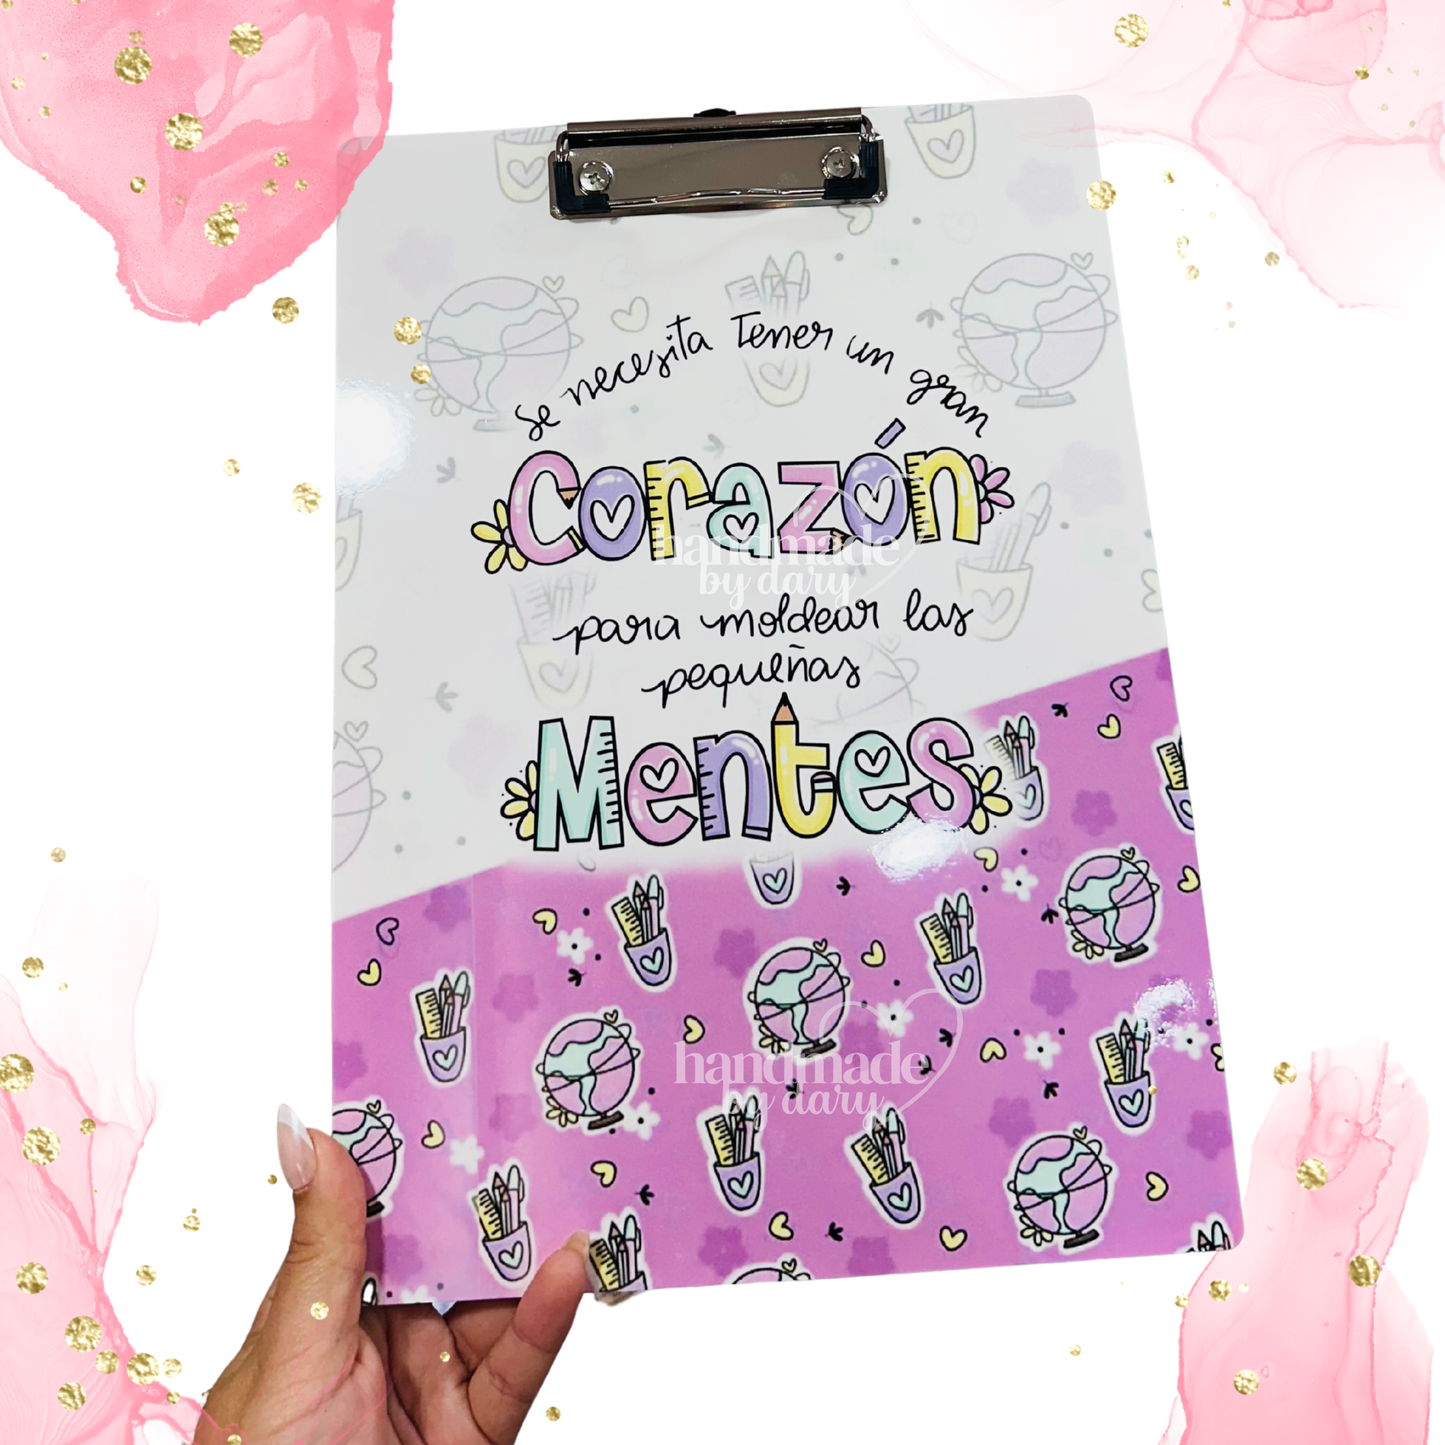 Se necesita tener un gran
Corazón
para moldear las
pequeñas
Mentes
handmade
by dary
handmade
by dary